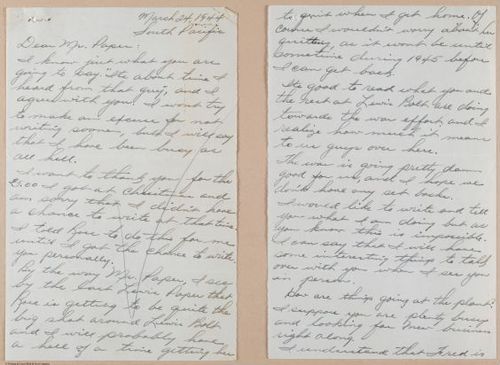 March 24, 1944
South Pacific
Dear Mr. Paper:
I know just what you are
going to say. Its about time I
heard from that guy, and I
agree with you. I wont try
to make an excuse for not
writing sooner, but I will say
that I have been busy as
all hell.
I want to thank you for the
I got at Christmas and
am sorry that I didn't have
a chance to write at that time.
I told Rose to do this for me
until I got the chance to write
you personally.
By the way Mr. Paper, I see
by the last Lewis Paper that
Rose is getting to be quite the
big shot around Lewis Bolt
and I will probably have
a hell of a time getting her
to quit when I get home. Of
course I wouldn't worry about her
quitting, as it wont be until
sometime during 1945 before
I can get back.
Its good to read what you and
the rest at Lewis Bolt are doing
towards the war effort, and I
realize how much it means
to us guys over here.
The war is going pretty damn
good for us, and I hope we
dont have any set backs.
I would like to write and tell
you what I am doing but as
you know this is impossible.
I can say that I will have
some interesting things to talk
over with you when I see you
in person.
How are things going at the plant?
I suppose you are plenty busy
and looking for new business
right along.
I understand that Fred is